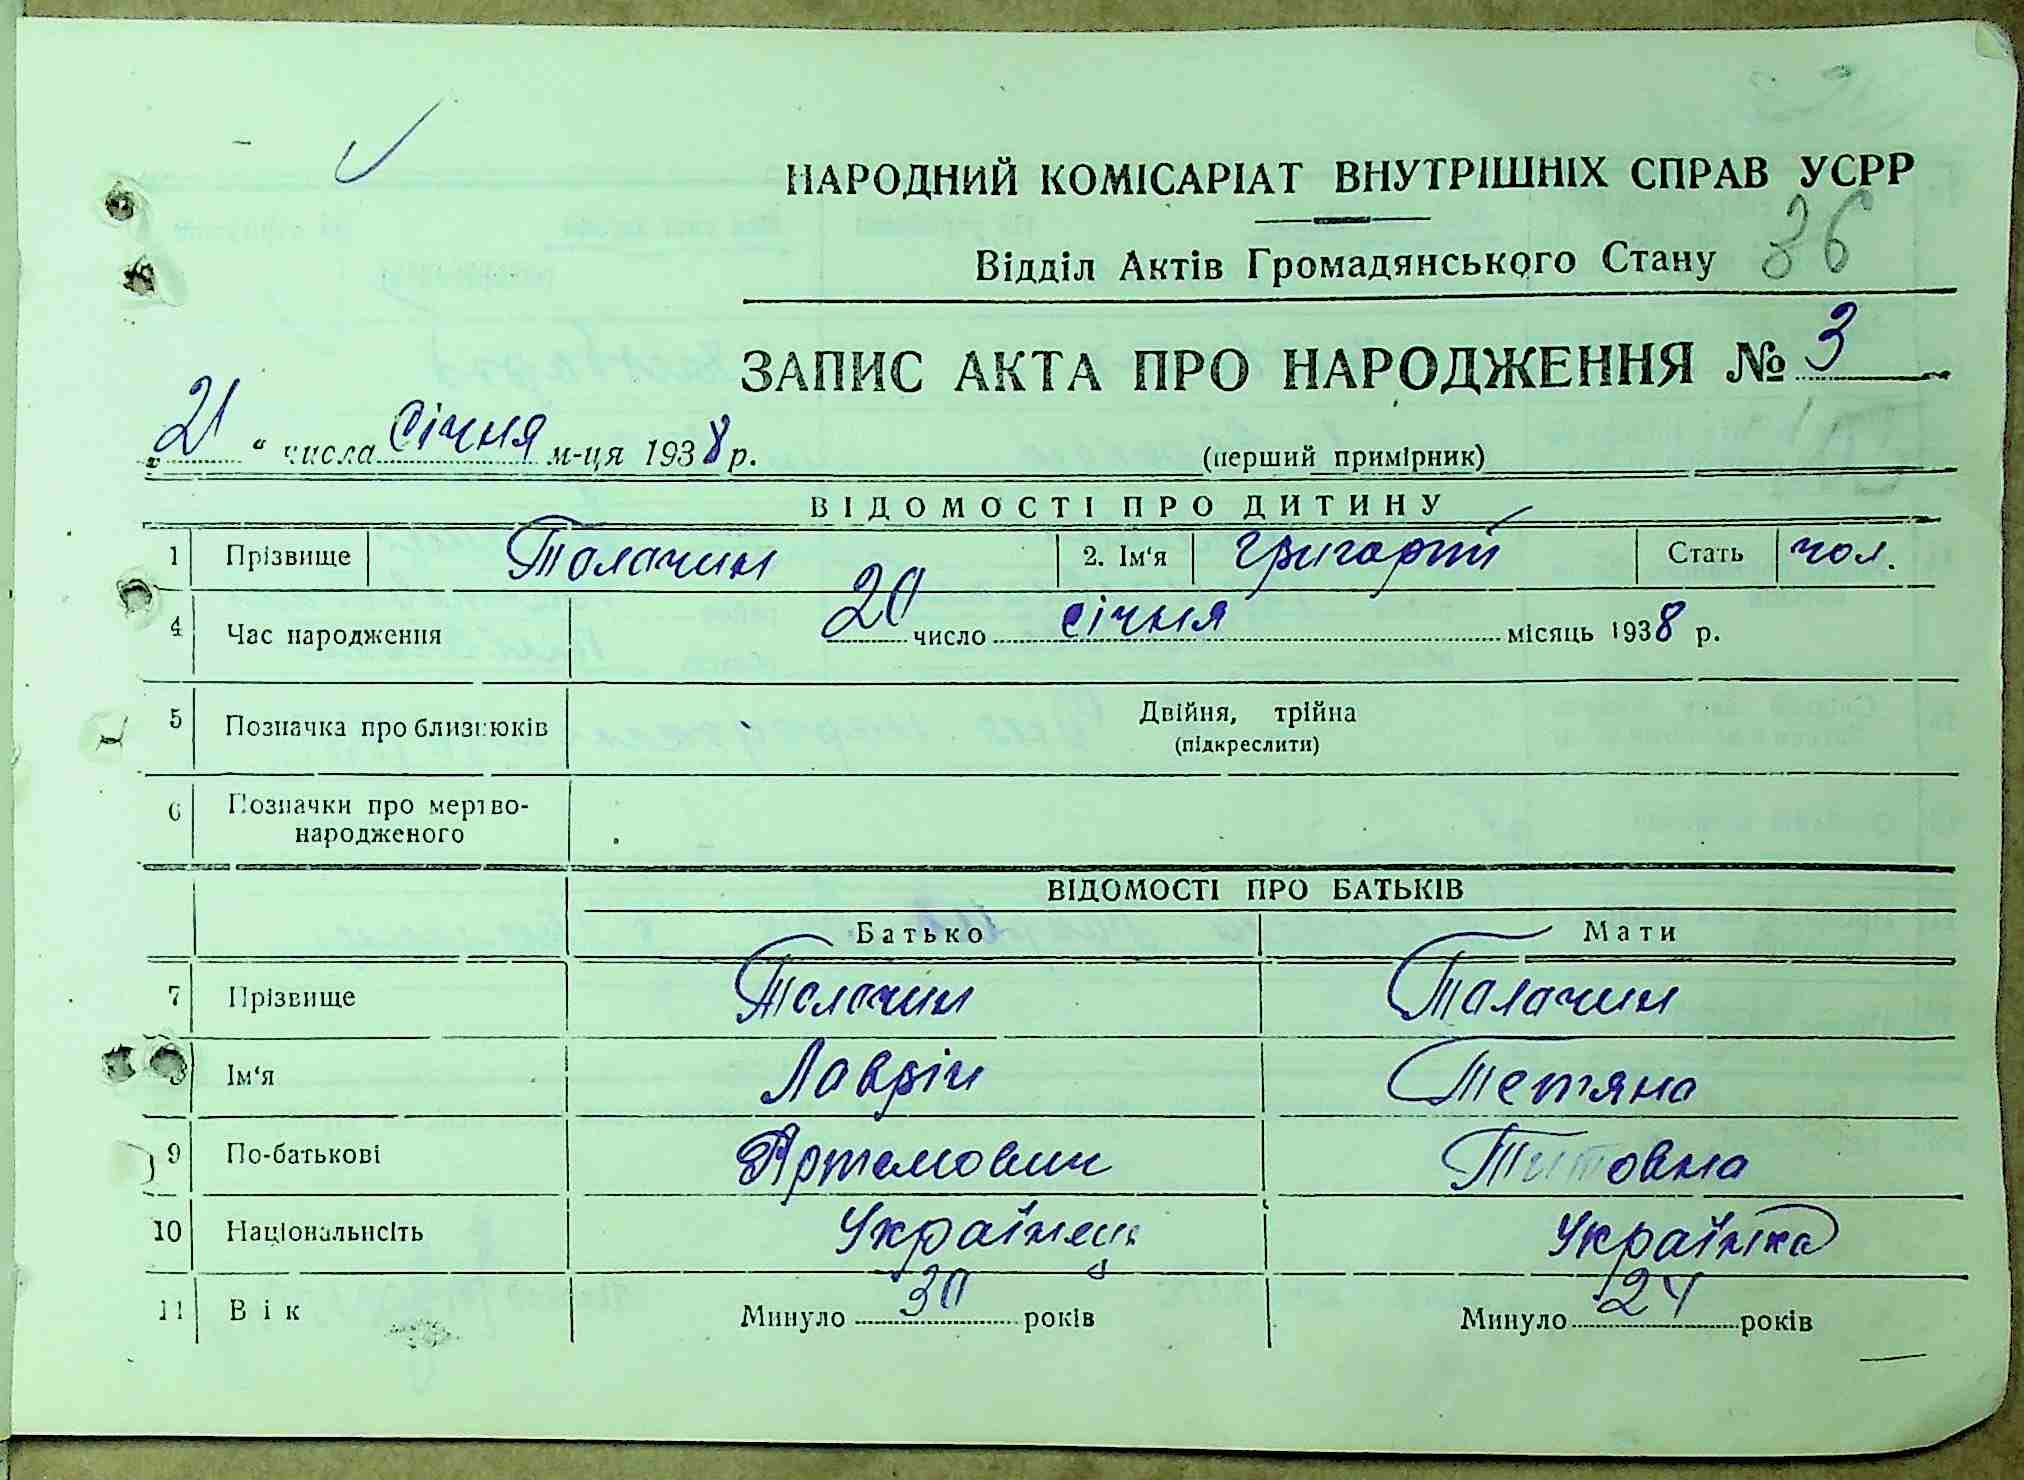 НАРОДНИЙ КОМІСАРІАТ ВНУТРІШНІХ СПРАВ УСРР
Відділ Актів Громадянського Стану 36
ЗАПИС АКТА ПРО НАРОДЖЕННЯ № 3
„21“ числа січня м-ця 1938 р. (перший примірник)
ВІДОМОСТІ ПРО ДИТИНУ
1 Прізвище Талачин 2. Ім‘я Григорій Стать чол.
4 Час народження 20 число січня місяць 1938 р.
5 Позначка про близнюків Двійня, трійна
(підкреслити)
6 Позначки про мертво-
народженого
ВІДОМОСТІ ПРО БАТЬКІВ
Батько Мати
7 Прізвище Талачин Талачин
8 Ім‘я Лаврін Тетяна
9 По-батькові Артемович Титовна
10 Національність Українець Українка
11 Вік Минуло 30 років Минуло 24 років